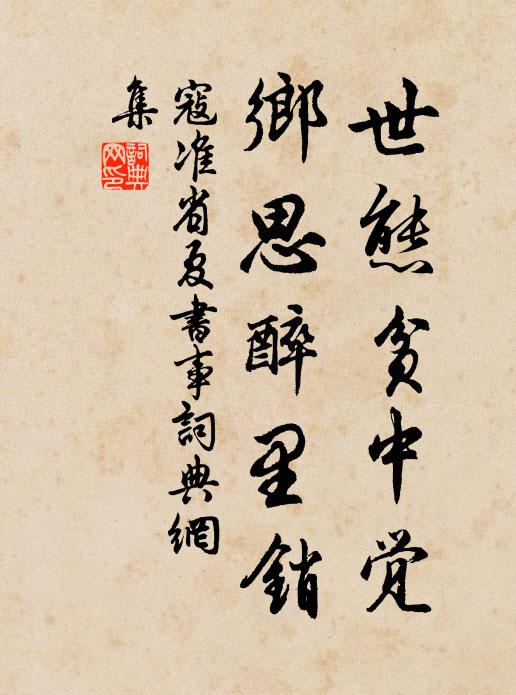 世態貧中觉
鄉思醉里銷
寇准省夏書事詞典網
集
詞典
网印